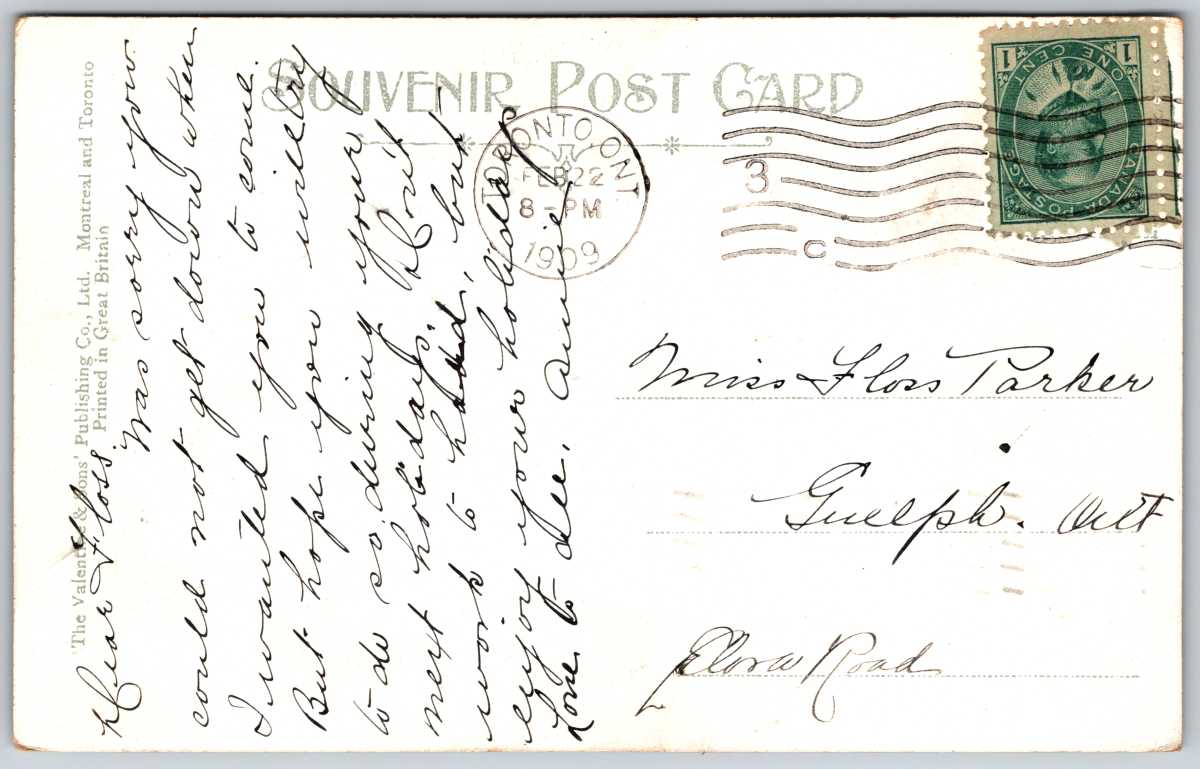 SOUVENIR POST CARD
The Valentine & Sons' Publishing Co., Ltd. Montreal and Toronto
Printed in Great Britain
TORONTO, ONT
FEB 22
8 - PM
1909
3
C
1 ONE CENT 1
CANADA POSTAGE
Dear Floss
Was sorry your
could not get down when
I wanted you to come.
But hope you will try
to do so during your
next holidays. Don't
work to hard, but
enjoy your holidays
Love to all, Annie
Miss Floss Parker
Guelph. Ont
Elora Road